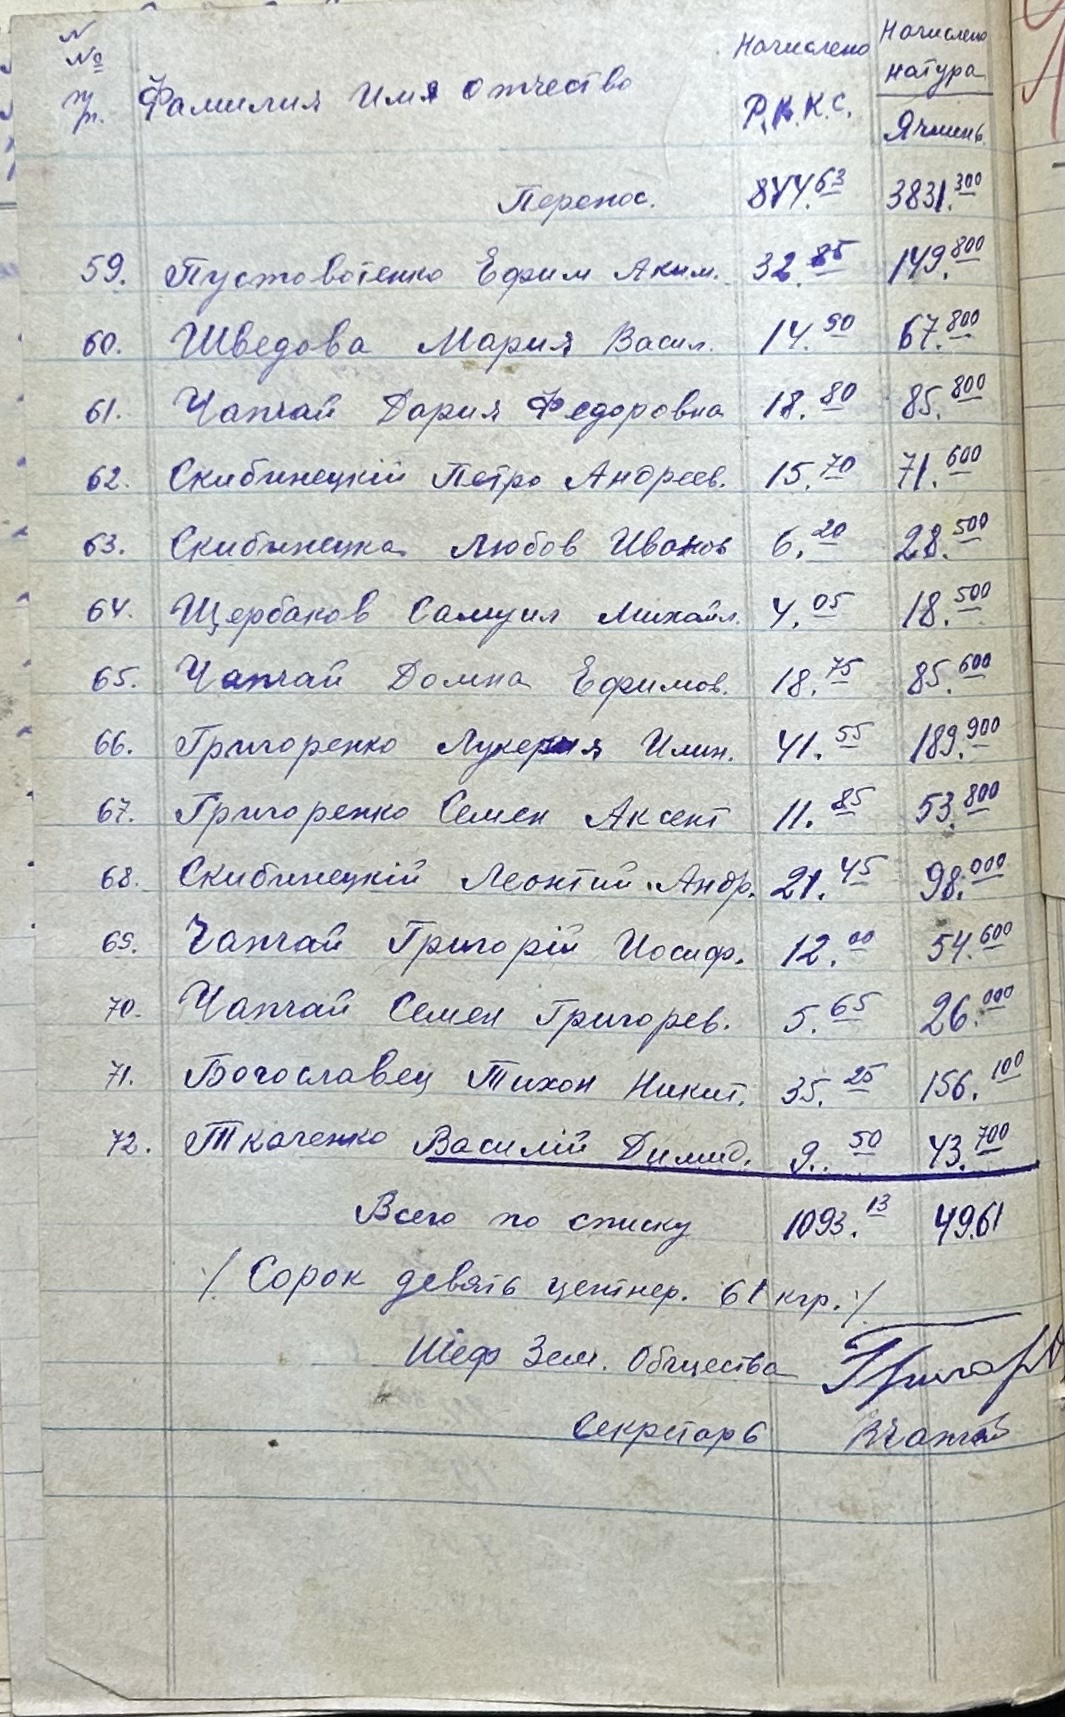 №№ п/п. Фамилия Имя Отчество Начислено Р.К.К.С. Начислено натура Ячмень
Перенос. 844.63 3831.300
59. Пустовотенко Ефим Аким. 32.85 149.800
60. Шведова Мария Васил. 14.90 67.800
61. Чапчай Дария Федоровна 18.80 85.800
62. Скибинецкій Петро Андреев. 15.70 71.600
63. Скибинецка Любов Иванов 6.20 28.500
64. Щербаков Самуил Михайл. 4.05 18.500
65. Чапчай Домна Ефимов. 18.75 85.600
66. Григоренко Лукерия Илин. 41.55 189.900
67. Григоренко Семен Аксент 11.85 53.800
68. Скибинецкій Леонтий Андр. 21.45 98.000
69. Чапчай Григорій Иосиф. 12.00 54.600
70. Чапчай Семен Григорев. 5.65 26.000
71. Богославец Тихон Никит. 35.25 156.100
72. Ткаченко Василій Димид. 9.50 43.700
Всего по списку 1093.13 4961
/ Сорок девять центнер. 61 кгр. /
Шеф Зем. Общества Григор
Секретарь ВЧапчай